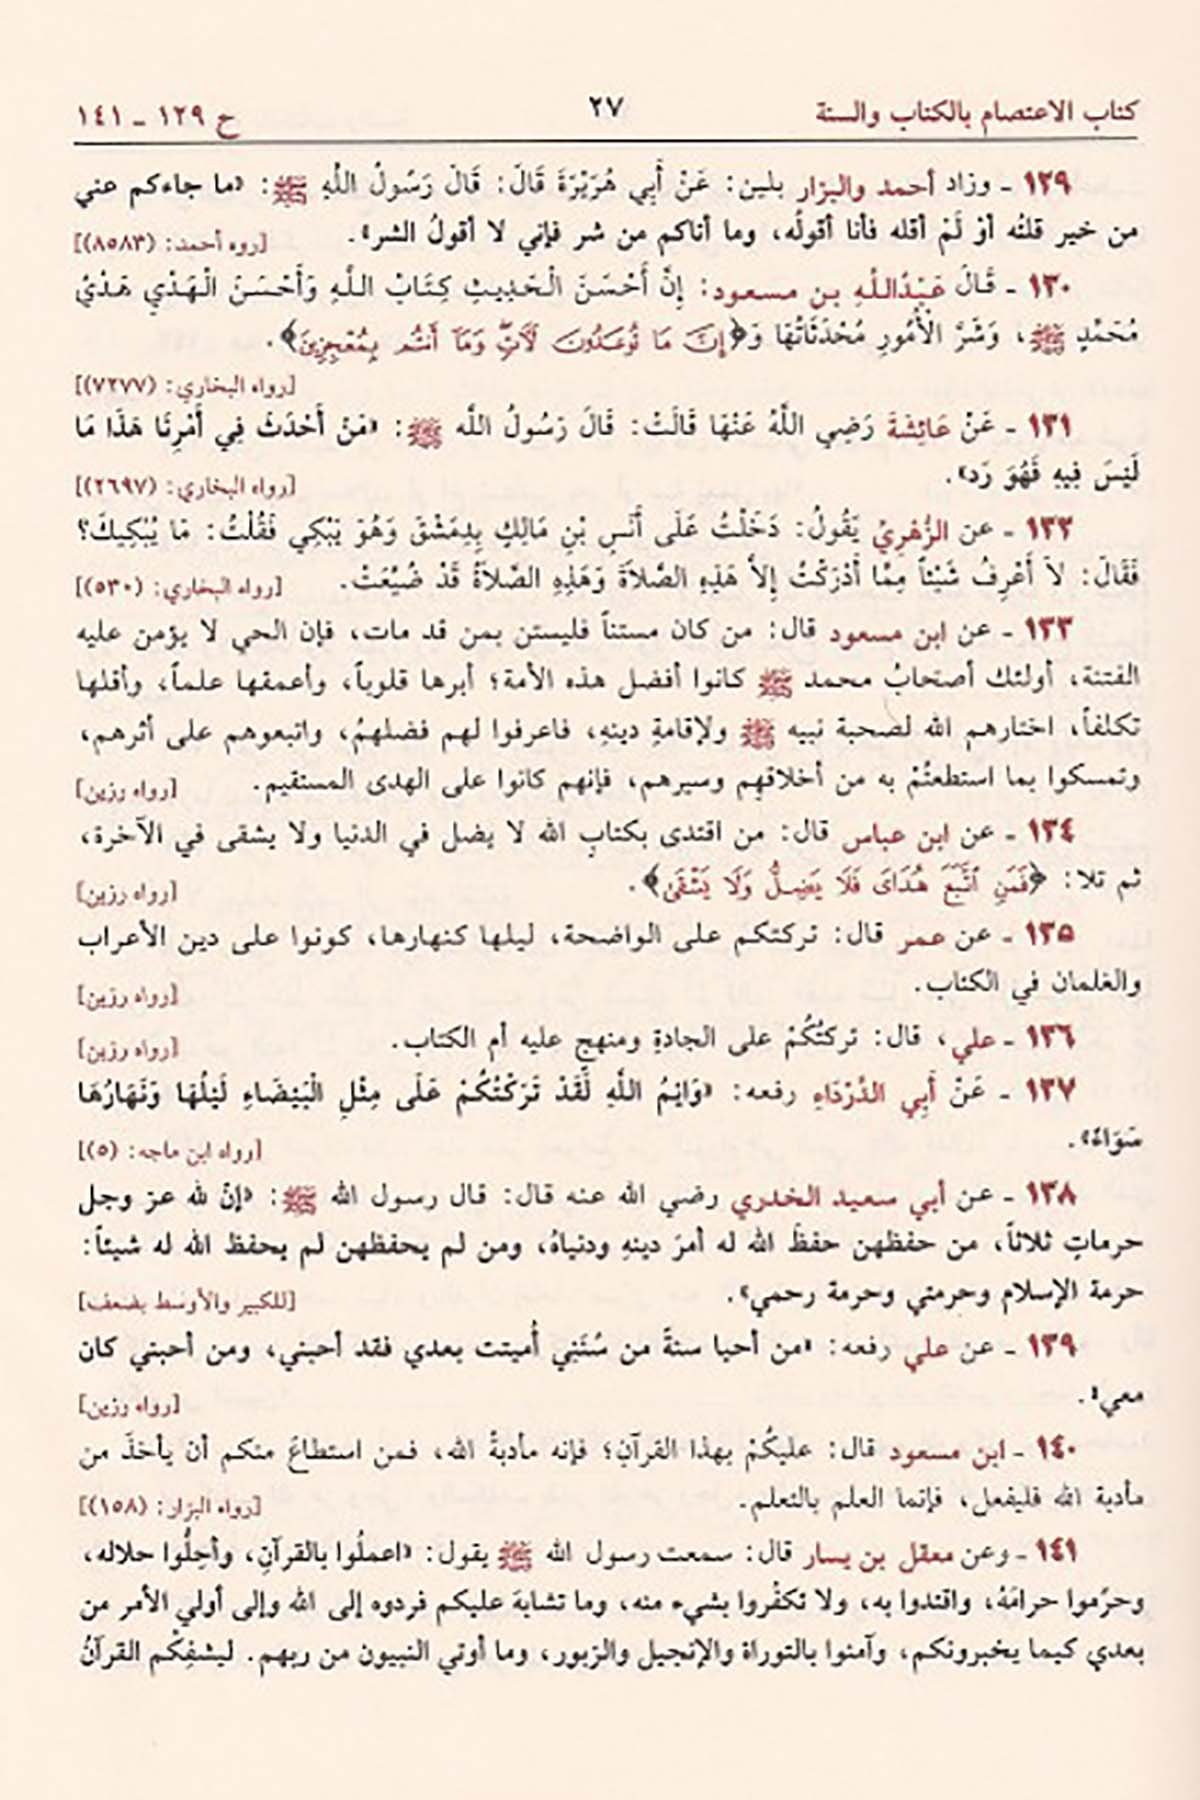 كتاب الاعتصام بالكتاب والسنة ٢٧ ح ١٢٩ ـ ١٤١
١٢٩ ـ وزاد أحمد والبزار بلين: عَنْ أَبِي هُرَيْرَةَ قَالَ: قَالَ رَسُولُ اللَّهِ ﷺ: «ما جاءكم عني
من خير قلتُه أوْ لَمْ أقله فأنا أقولُه، وما أتاكم من شر فإني لا أقولُ الشر». [روه أحمد: (٨٥٨٣)]
١٣٠ ـ قَالَ عَبْدُاللَّهِ بن مسعود: إِنَّ أَحْسَنَ الْحَدِيثِ كِتَابُ اللَّهِ وَأَحْسَنَ الْهَدْيِ هَدْيُ
مُحَمَّدٍ ﷺ، وَشَرَّ الْأُمُورِ مُحْدَثَاتُهَا وَ﴿إِنَّ مَا تُوعَدُونَ لَآتٍ وَمَا أَنتُم بِمُعْجِزِينَ﴾.
[رواه البخاري: (٧٢٧٧)]
١٣١ ـ عَنْ عَائِشَةَ رَضِي اللَّهُ عَنْهَا قَالَتْ: قَالَ رَسُولُ اللَّه ﷺ: «مَنْ أَحْدَثَ فِي أَمْرِنَا هَذَا مَا
لَيْسَ فِيهِ فَهُوَ رَد». [رواه البخاري: (٢٦٩٧)]
١٣٢ ـ عن الزُّهْرِيَّ يَقُولُ: دَخَلْتُ عَلَى أَنَسِ بْنِ مَالِكٍ بِدِمَشْقَ وَهُوَ يَبْكِي فَقُلْتُ: مَا يُبْكِيكَ؟
فَقَالَ: لاَ أَعْرِفُ شَيْئاً مِمَّا أَدْرَكْتُ إِلاَّ هَذِهِ الصَّلاَةَ وَهَذِهِ الصَّلاَةُ قَدْ ضُيِّعَتْ. [رواه البخاري: (٥٣٠)]
١٣٣ ـ عن ابن مسعود قال: من كان مستناً فليستن بمن قد مات، فإن الحي لا يؤمن عليه
الفتنة، أولئك أصحابُ محمد ﷺ كانوا أفضل هذه الأمة؛ أبرها قلوباً، وأعمقها علماً، وأقلها
تكلفاً، اختارهم الله لصحبة نبيه ﷺ ولإقامةِ دينهِ، فاعرفوا لهم فضلهمُ، واتبعوهم على أثرهم،
وتمسكوا بما استطعتُمْ به من أخلاقهِم وسيرهم، فإنهم كانوا على الهدى المستقيم. [رواه رزين]
١٣٤ ـ عن ابن عباس قال: من اقتدى بكتابِ الله لا يضل في الدنيا ولا يشقى في الآخرة،
ثم تلا: ﴿فَمَنِ اتَّبَعَ هُدَايَ فَلَا يَضِلُّ وَلَا يَشْقَى﴾. [رواه رزين]
١٣٥ ـ عن عمر قال: تركتكم على الواضحة، ليلها كنهارها، كونوا على دين الأعراب
والغلمان في الكتاب. [رواه رزين]
١٣٦ ـ علي، قال: تركتُكُمْ على الجادةِ ومنهجٍ عليه أم الكتاب. [رواه رزين]
١٣٧ ـ عَنْ أَبِي الدَّرْدَاءِ رفعه: «وَايْمُ اللَّهِ لَقَدْ تَرَكْتُكُمْ عَلَى مِثْلِ الْبَيْضَاءِ لَيْلُهَا وَنَهَارُهَا
سَوَاءٌ». [رواه ابن ماجه: (٥)]
١٣٨ ـ عن أبي سعيد الخدري رضي الله عنه قال: قال رسول الله ﷺ: «إنّ لله عز وجل
حرماتٍ ثلاثاً، من حفظهن حفظَ الله له أمرَ دينهِ ودنياهُ، ومن لم يحفظهن لم يحفظ الله له شيئاً:
حرمة الإسلام وحرمتي وحرمة رحمي». [للكبير والأوسط بضعف]
١٣٩ ـ عن علي رفعه: «من أحيا سنةً من سُنَتِي أُميتت بعدي فقد أحبني، ومن أحبني كان
معي». [رواه رزين]
١٤٠ ـ ابن مسعود قال: عليكُمْ بهذا القرآنِ؛ فإنه مأدبةُ الله، فمن استطاعَ منكم أن يأخذَ من
مأدبة الله فليفعل، فإنما العلم بالتعلم. [رواه البزار: (١٥٨)]
١٤١ ـ وعن معقل بن يسار قال: سمعت رسول الله ﷺ يقول: «اعملُوا بالقرآنِ، وأحِلُّوا حلاله،
وحرّموا حرامَهُ، واقتدوا به، ولا تكفُروا بشيء منه، وما تشابهَ عليكم فردوه إلى الله وإلى أولي الأمر من
بعدي كيما يخبرونكم، وآمنوا بالتوراة والإنجيل والزبور، وما أوتي النبيون من ربهم. ليشفِكُم القرآنُ